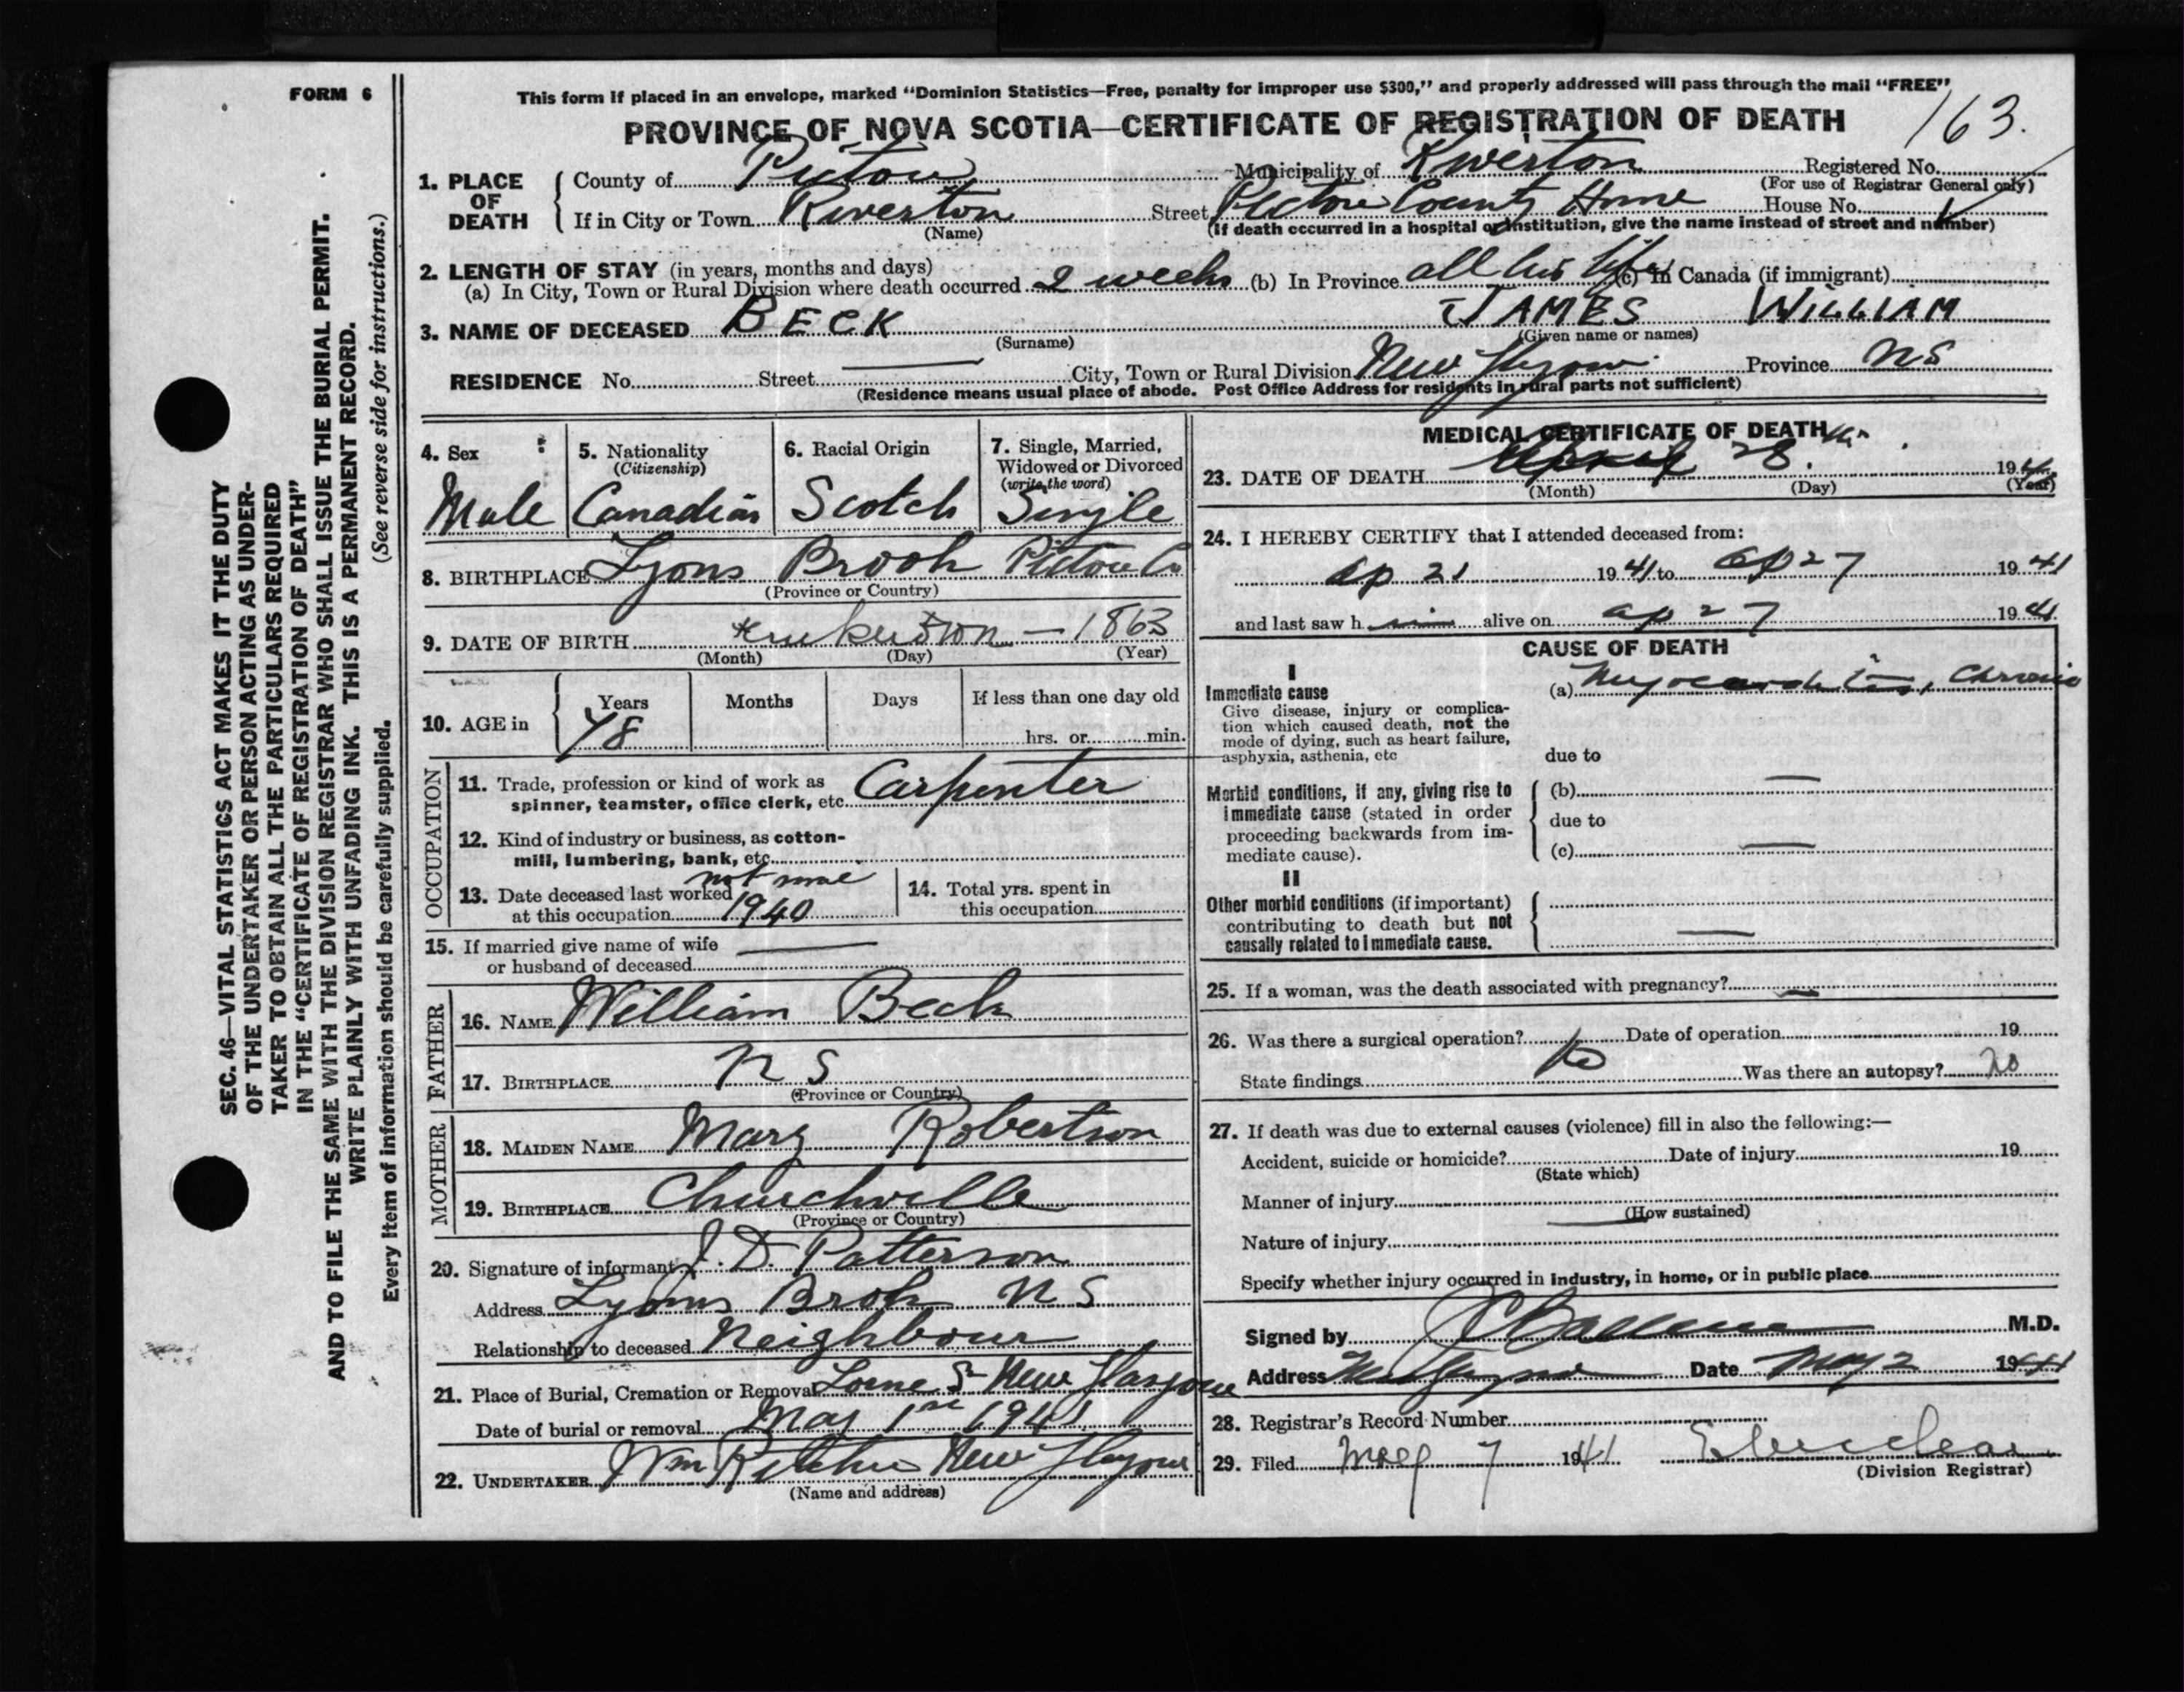 FORM 6
This form if placed in an envelope, marked "Dominion Statistics—Free, penalty for improper use $300," and properly addressed will pass through the mail "FREE"
PROVINCE OF NOVA SCOTIA—CERTIFICATE OF REGISTRATION OF DEATH
163.
1. PLACE OF DEATH
County of Pictou Municipality of Riverton Registered No.
(For use of Registrar General only)
If in City or Town Riverton Street Pictou County Home House No.
(Name) (If death occurred in a hospital or institution, give the name instead of street and number)
2. LENGTH OF STAY (in years, months and days)
(a) In City, Town or Rural Division where death occurred 2 weeks (b) In Province all his life (c) In Canada (if immigrant)
3. NAME OF DECEASED BECK JAMES WILLIAM
(Surname) (Given name or names)
RESIDENCE No. Street City, Town or Rural Division New Glasgow Province NS
(Residence means usual place of abode. Post Office Address for residents in rural parts not sufficient)
4. Sex
Male
5. Nationality
(Citizenship)
Canadian
6. Racial Origin
Scotch
7. Single, Married,
Widowed or Divorced
(write the word)
Single
8. BIRTHPLACE Lyons Brook Pictou Co
(Province or Country)
9. DATE OF BIRTH unknown — 1863
(Month) (Day) (Year)
10. AGE in
Years Months Days If less than one day old
78 hrs. or min.
OCCUPATION
11. Trade, profession or kind of work as
spinner, teamster, office clerk, etc. Carpenter
12. Kind of industry or business, as cotton-
mill, lumbering, bank, etc.
13. Date deceased last worked not since
at this occupation 1940
14. Total yrs. spent in
this occupation
15. If married give name of wife
or husband of deceased
FATHER
16. NAME William Beck
17. BIRTHPLACE N S
(Province or Country)
MOTHER
18. MAIDEN NAME Mary Robertson
19. BIRTHPLACE Churchville
(Province or Country)
20. Signature of informant J. D. Patterson
Address Lyons Brok N S
Relationship to deceased Neighbour
21. Place of Burial, Cremation or Removal Lorne St New Glasgow
Date of burial or removal May 1st 1941
22. UNDERTAKER Wm Ritchie New Glasgow
(Name and address)
MEDICAL CERTIFICATE OF DEATH
23. DATE OF DEATH April 28 1941
(Month) (Day) (Year)
24. I HEREBY CERTIFY that I attended deceased from:
Ap 21 1941 to Ap 27 1941
and last saw him alive on ap 27 1941
CAUSE OF DEATH
I
Immediate cause
Give disease, injury or complica-
tion which caused death, not the
mode of dying, such as heart failure,
asphyxia, asthenia, etc
(a) Myocarditis, Chronic
due to
Morbid conditions, if any, giving rise to
immediate cause (stated in order
proceeding backwards from im-
mediate cause).
(b)
due to
(c)
II
Other morbid conditions (if important)
contributing to death but not
causally related to immediate cause.
25. If a woman, was the death associated with pregnancy?
26. Was there a surgical operation? No Date of operation 19
State findings Was there an autopsy? No
27. If death was due to external causes (violence) fill in also the following:—
Accident, suicide or homicide? Date of injury 19
(State which)
Manner of injury
(How sustained)
Nature of injury
Specify whether injury occurred in industry, in home, or in public place
Signed by M.D.
Address Date May 2 1941
28. Registrar's Record Number
29. Filed May 7 1941
(Division Registrar)
SEC. 46—VITAL STATISTICS ACT MAKES IT THE DUTY
OF THE UNDERTAKER OR PERSON ACTING AS UNDER-
TAKER TO OBTAIN ALL THE PARTICULARS REQUIRED
IN THE "CERTIFICATE OF REGISTRATION OF DEATH"
AND TO FILE THE SAME WITH THE DIVISION REGISTRAR WHO SHALL ISSUE THE BURIAL PERMIT.
WRITE PLAINLY WITH UNFADING INK. THIS IS A PERMANENT RECORD.
Every item of information should be carefully supplied. (See reverse side for instructions.)